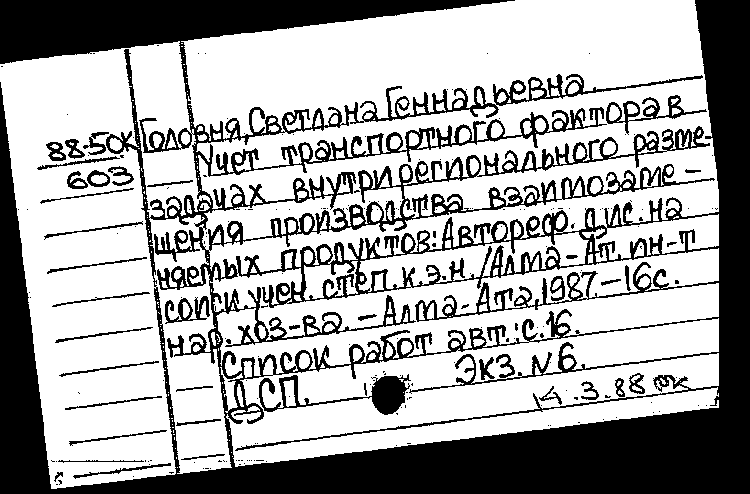 88-50к Головня, Светлана Геннадьевна.
603 Учет транспортного фактора в
задачах внутрирегионального разме-
щения производства взаимозаме-
няемых продуктов: Автореф. дис. на
соиск. учен. степ. к.э.н. / Алма-Ат. ин-т
нар. хоз-ва. - Алма-Ата, 1987. - 16с.
Список работ авт.: с.16.
ДСП. Экз. №6.
14.3.88